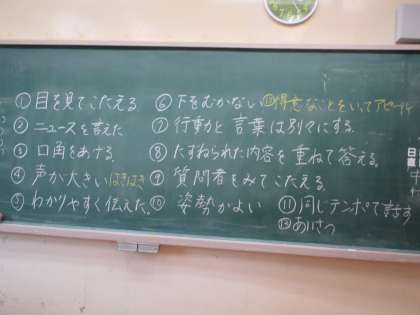 ①目を見てこたえる
②ニュースを言えた
③口角をあげる
④声が大きい はきはき
⑤わかりやすく伝えた。
⑥下をむかない
⑦行動と言葉は別々にする。
⑧たずねられた内容を重ねて答える。
⑨質問者をみてこたえる。
⑩姿勢がよい
⑪同じテンポで話す
⑫あいさつ
得意なことをいってアピール